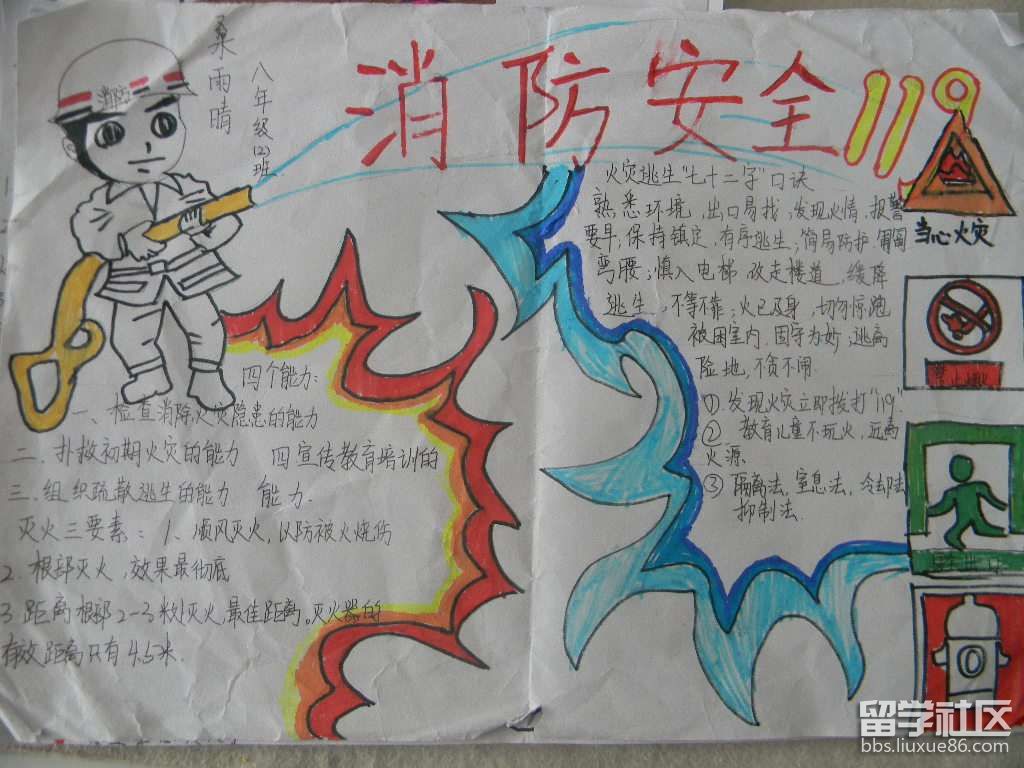 消防安全119
桑雨晴
八年级(2)班
消防
火灾逃生"七十二字"口诀
熟悉环境，出口易找；发现火情，报警
要早；保持镇定，有序逃生；简易防护，匍匐
弯腰；慎入电梯，改走楼道，缓降
逃生，不等不靠；火已及身，切勿惊跑
被困室内，固守为妙；逃离
险地，不贪不闹.
①.发现火灾立即拨打"119".
② 教育儿童不玩火，远离
火源
③ 隔离法，窒息法，冷却法
抑制法.
当心火灾
四个能力:
一、检查消除火灾隐患的能力
二、扑救初期火灾的能力 四宣传教育培训的
三、组织疏散逃生的能力 能力.
灭火三要素：1、顺风灭火，以防被火烧伤
2. 根部灭火，效果最彻底
3.距离根部2-3米灭火最佳距离。灭火器的
有效距离只有4.5米.
留学社区
bbs.liuxue86.com